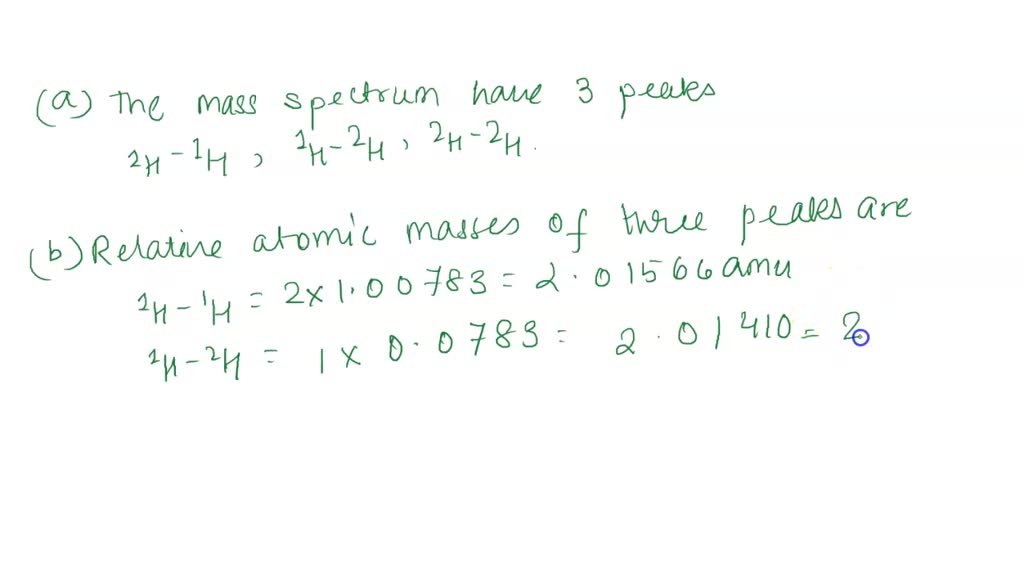 (a) The mass spectrum have 3 peaks
²H - ¹H, ¹H - ²H, ²H - ²H.
(b) Relative atomic masses of three peaks are
¹H - ¹H = 2 x 1.00783 = 2.01566 amu
¹H - ²H = 1 x 0.0783 = 2.01410 = 2